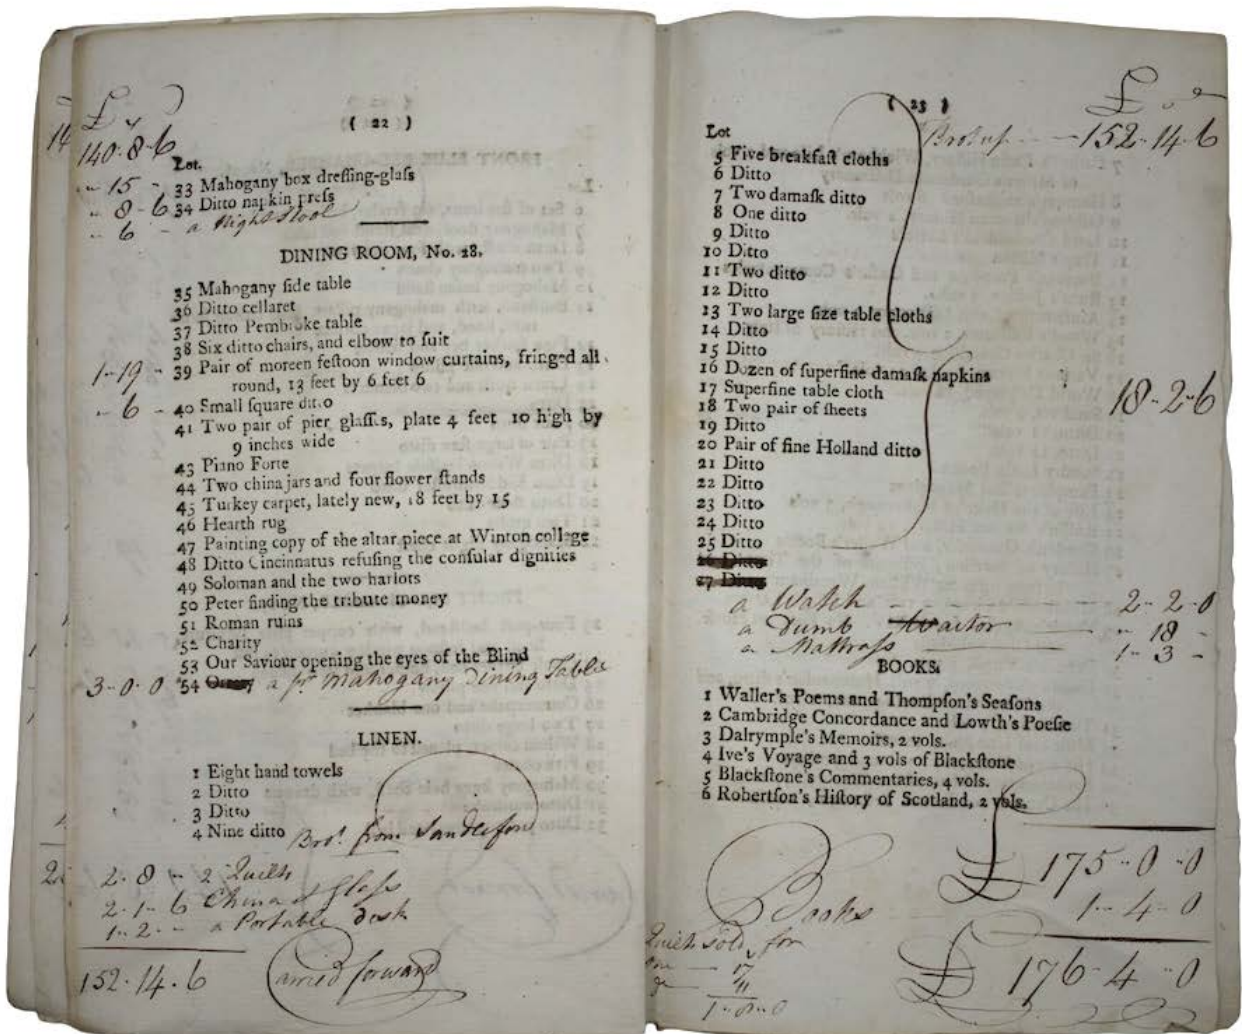 £
( 22 )
140-8-6
Lot.
- 15 - 33 Mahogany box dreſſing-glaſs
- 8-6 34 Ditto napkin preſs
- 6 - a Night Stool
DINING ROOM, No. 28.
35 Mahogany ſide table
36 Ditto cellaret
37 Ditto Pembroke table
38 Six ditto chairs, and elbow to ſuit
1-19 - 39 Pair of moreen feſtoon window curtains, fringed all
round, 13 feet by 6 feet 6
- 6 - 40 Small ſquare ditto
41 Two pair of pier glaſſes, plate 4 feet 10 high by
9 inches wide
43 Piano Forte
44 Two china jars and four flower ſtands
45 Turkey carpet, lately new, 18 feet by 15
46 Hearth rug
47 Painting copy of the altar piece at Winton college
48 Ditto Cincinnatus refuſing the conſular dignities
49 Soloman and the two harlots
50 Peter finding the tribute money
51 Roman ruins
52 Charity
53 Our Saviour opening the eyes of the Blind
3-0-0 54 a pr Mahogany Dining Table
LINEN.
1 Eight hand towels
2 Ditto
3 Ditto
4 Nine ditto Brot from
2-8 - 2 Quilts
2-1-6 China & Glass
1-2-- a Portable Desk
152-14-6 Carried forward
( 23 )
£
Lot
152-14-6
5 Five breakfaſt cloths
6 Ditto
7 Two damaſk ditto
8 One ditto
9 Ditto
10 Ditto
11 Two ditto
12 Ditto
13 Two large ſize table cloths
14 Ditto
15 Ditto
16 Dozen of ſuperfine damaſk napkins
17 Superfine table cloth
18-2-6
18 Two pair of ſheets
19 Ditto
20 Pair of fine Holland ditto
21 Ditto
22 Ditto
23 Ditto
24 Ditto
25 Ditto
26 Ditto
27 Ditto
a Watch 2-2-0
a Dumb Waitor - 18 -
a Mattrass 1-3-
BOOKS.
1 Waller's Poems and Thompſon's Seaſons
2 Cambridge Concordance and Lowth's Poeſie
3 Dalrymple's Memoirs, 2 vols.
4 Ive's Voyage and 3 vols of Blackſtone
5 Blackſtone's Commentaries, 4 vols.
6 Robertſon's Hiſtory of Scotland, 2 vols.
£ 175-0-0
Books 1-4-0
Quilts sold for
£ 176-4-0
one 17
11